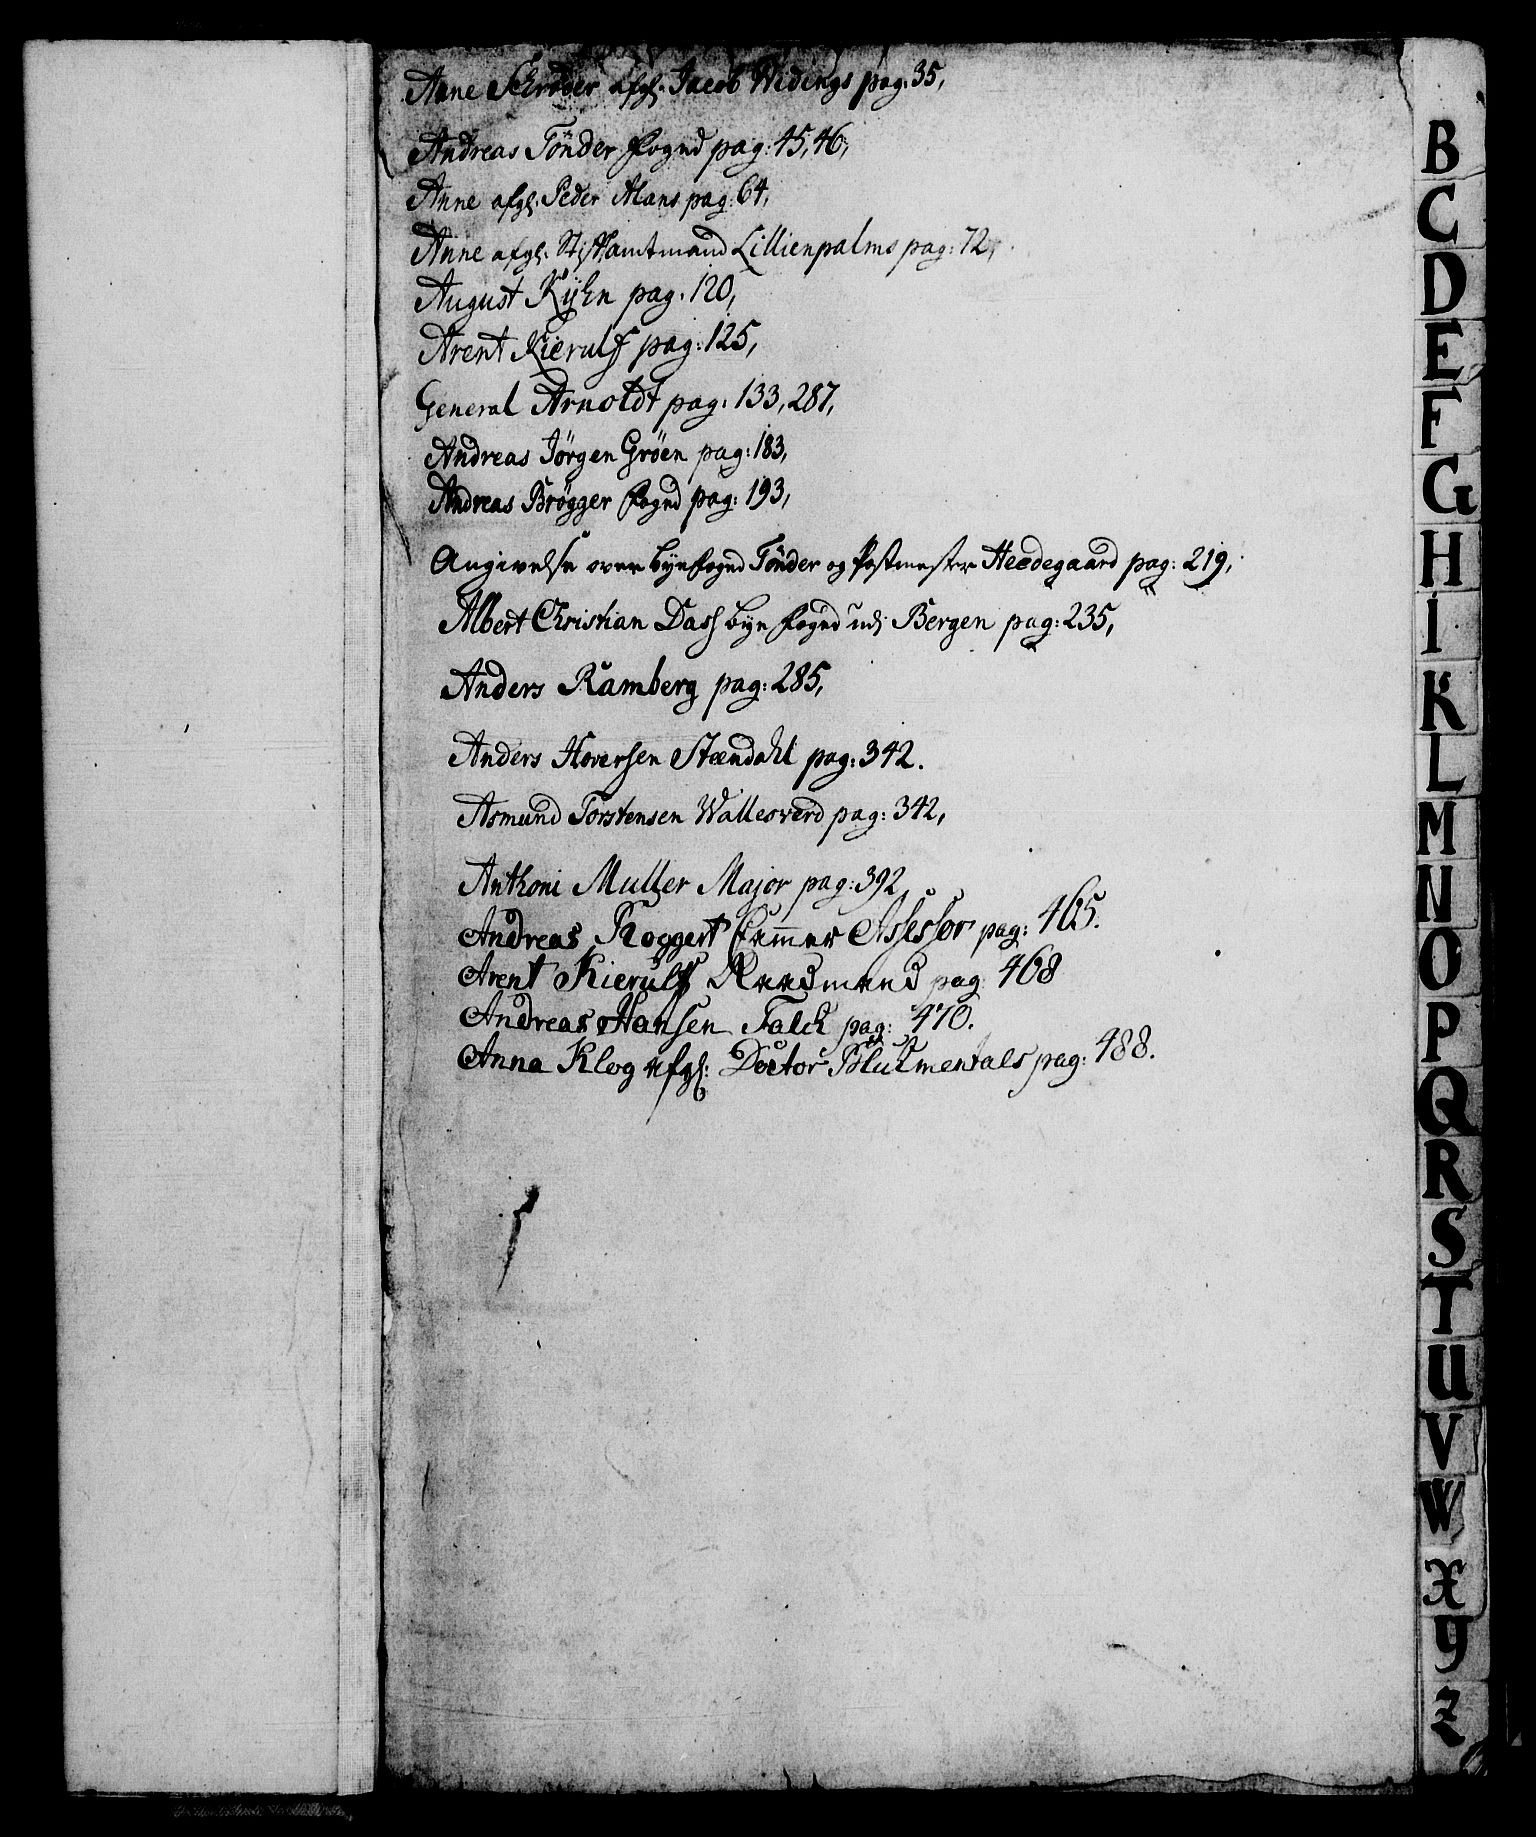 Anne Schrøder afgl: Jacob Wedings pag: 35,
Andreas Tönder Fogud pag: 45, 46,
Anne afgl: Peder Mans pag: 64,
Anne afgl: Stiftamtmand Lillienpalms pag: 72,
August Kühn pag: 120,
Arent Kierulf pag: 125,
General Arnoldt pag: 133, 287,
Andreas Jörgen Gröen pag: 183,
Andreas Brögger Fogud pag: 193,
Angivelse over byefogud Tönder og Postmester Heedegaard pag: 219,
Albert Christian Dass byefogud udi Bergen pag: 235,
Anders Ramberg pag: 285,
Anders Hoversen Steendahl pag: 342.
Asmund Torstensen Wallesverd pag: 342,
Anthoni Muller Major pag: 392,
Andreas Roggert Cammer Assessor pag: 465.
Arent Kierulf Raadmand pag: 468
Andreas Hansen Falck pag: 470.
Anna Klog afgl: Doctor Blukmentals pag: 488.
B
C
D
E
F
G
H
I
K
L
M
N
O
P
Q
R
S
T
U
V
W
X
y
z